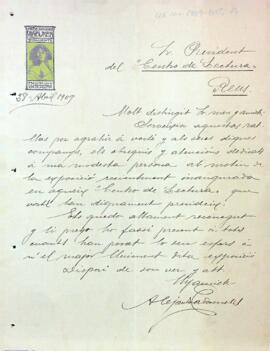 28 Abril 1909
Sr President
del "Centro de Lectura"
Reus
Molt distingit Sr meu y amich:
aquestas rat
llas per agrahir á vosté y als altres dignes
companys, els obsequis y atencions dedicats
á ma modesta persona al motiu de
la exposició recientment inaugurada
en aqueix "Centro de Lectura", que
vosté tan dignament presideix.
Els quedo altament reconegut
y li prego ho fassi present á tots
cuants han posat lo seu esfors á
fi el major lluiment de la exposició
Disposi de son ver y att.
Amich